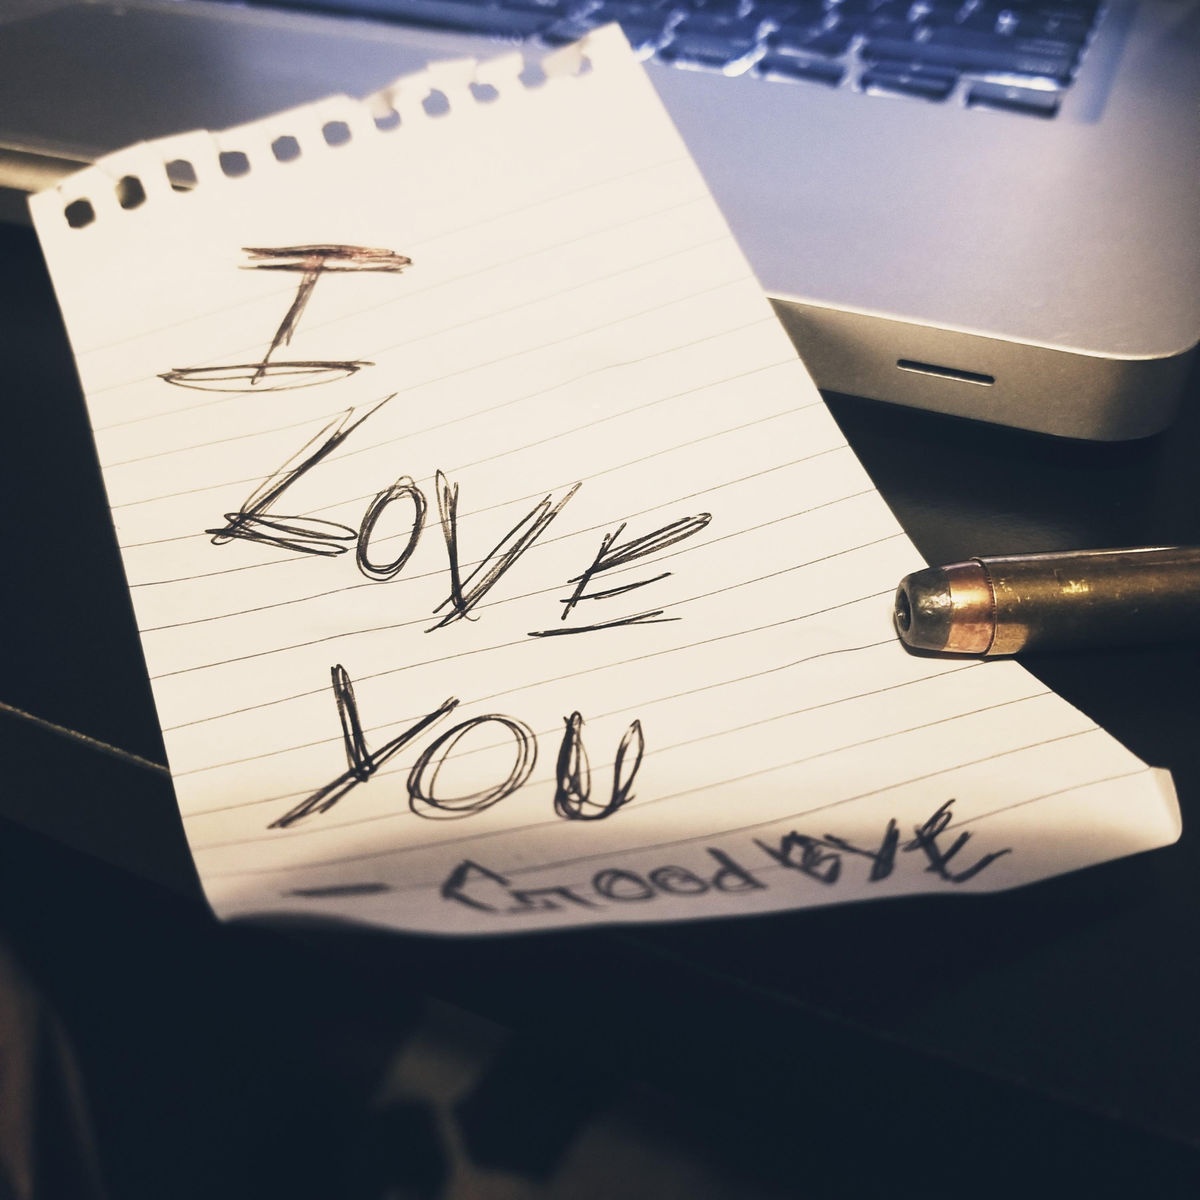 I
LOVE
YOU
- GOOD BYE